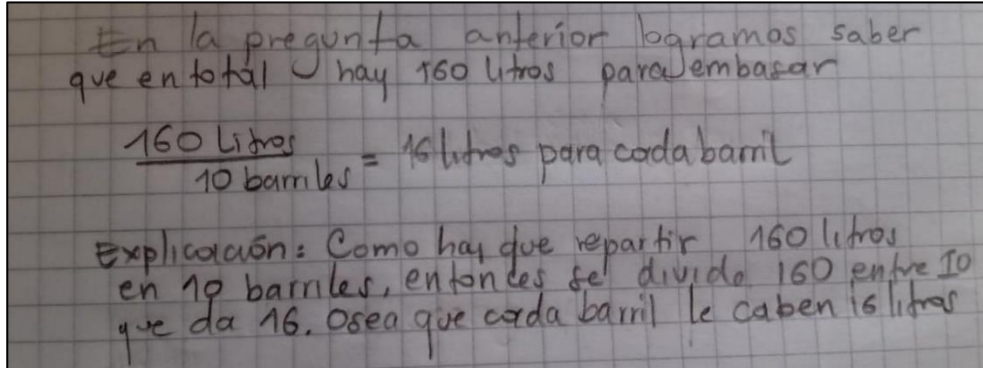 En la pregunta anterior logramos saber
que en total hay 160 litros para embasar
160 Litros
10 barriles = 16 litros para cada barril
Explicación: Como hay que repartir 160 litros
en 10 barriles, entonces se divide 160 entre 10
que da 16. Osea que cada barril le caben 16 litros